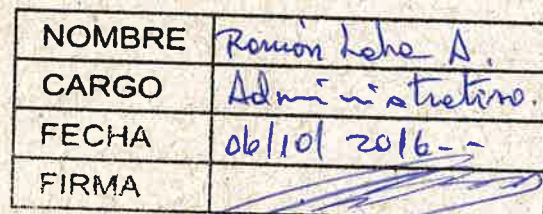 NOMBRE Ramón A.
CARGO Administrativo.
FECHA 06/10/2016--
FIRMA